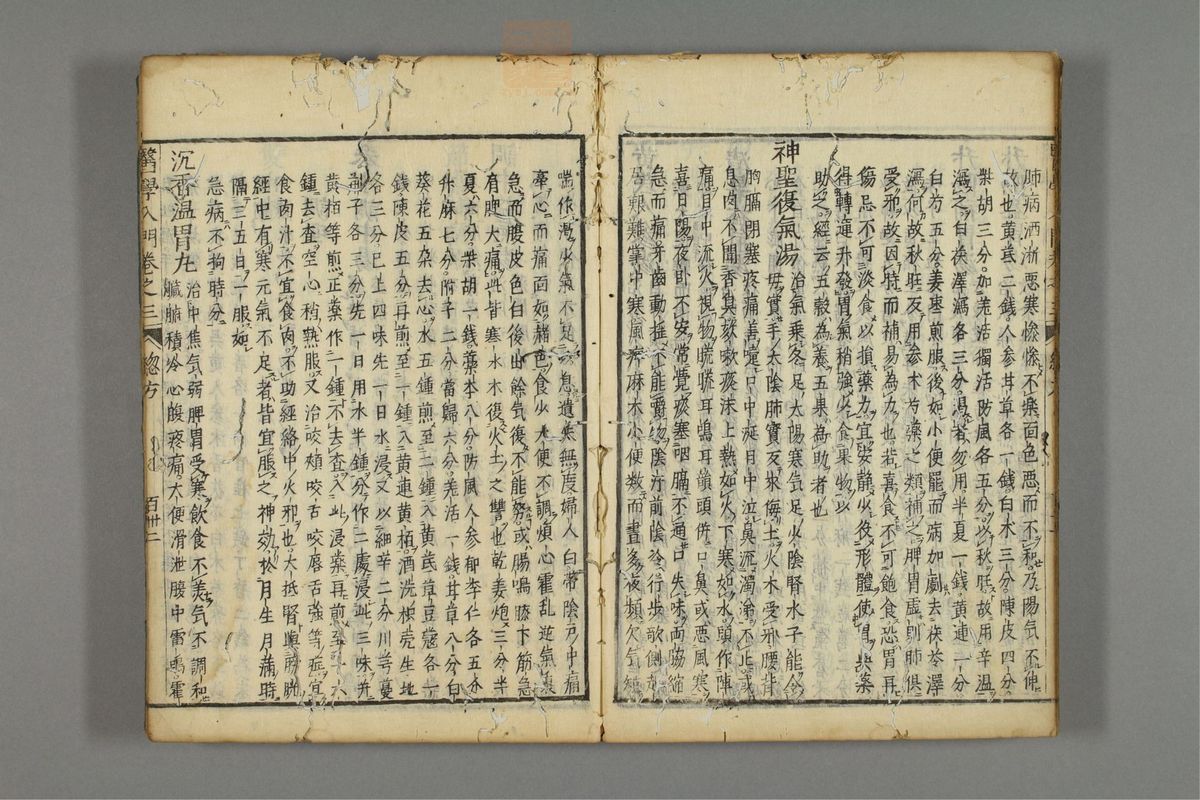 肺病洒淅惡寒慘慘不樂面色惡而不和乃陽气不伸
故也黄茋二錢人参甘草各一錢白术三分陳皮四分
柴胡三分如羌活獨活防風各五分以秋旺故用辛温
瀉之白茯澤瀉各三分渴者勿用半夏一錢黄連一分
白芍五分姜枣煎服後如小便罷而病加劇去茯苓澤
瀉何故秋旺反用参术芍藥之類補之脾胃虚則肺俱
受邪故因時而補易為力也若喜食不可飽食恐胃再
傷忌不可淡食以損藥力宜安靜少役形體使胃与藥
得轉運升發胃气稍強少食果物以
助之經云五穀為養五果為助者也
神聖復氣湯
治氣乗冬足太陽寒气足少陰腎水子能令
母實手太陰肺實反來侮土火木受邪腰背
胸膈閉塞疼痛善嚏口中涎目中泣鼻流濁涕不止或
息肉不聞香臭欬嗽痰沫上熱如火下寒如水頭作陣
痛目中流火視物𥇀𥇀耳鳴耳聾頭併口鼻或惡風寒
喜日陽夜卧不安常覺痰塞咽膈不通口失味両脇縮
急而痛牙齒動揺不能嚼物陰汗前陰冷行歩欹側
居艱難掌中寒風痹麻木小便数而晝多夜頻欠气短
喘作渇少氣不足以息遺矢無度婦人白带陰户中痛
牽心而痛面如赭色食少大便不調煩心霍乱逆氣裏
急而腹皮色白後出餘气復不能努或腸鳴膝下筋急
有脾大痛此皆寒水木復火土之讐也乾姜炮三分半
夏六分柴胡一錢藁本八分防風人参郁李仁各五分
升麻七分附子二分當歸六分羌活一錢甘草八分白
葵花五朶去心水五鍾煎至二鍾入黄茋草豆蔻各一
錢陳皮五分再煎至一鍾入黄連黄栢酒洗枳壳生地
各三分已上四味先一日水浸又以細辛二分川芎蔓
荊子各三分先一日用水半鍾分作二處浸此三味并
黄栢等煎正薬作一鍾不去査入此浸薬再煎至一大
鍾去査空心稍熱服又治咬頬咬舌咬唇舌強等症宜
食肉汁不宜食肉不助經絡中火邪也大抵腎與膀胱
經中有寒元氣不足者皆宜服之神効於月生月満時
隔三五日一服如
急病不拘時分
沉香温胃丸
治中焦气弱脾胃受寒飲食不美气不調和
臟腑積冷心腹疼痛大便滑泄腹中雷鳴霍
醫學入門卷之三
總方
百卅二